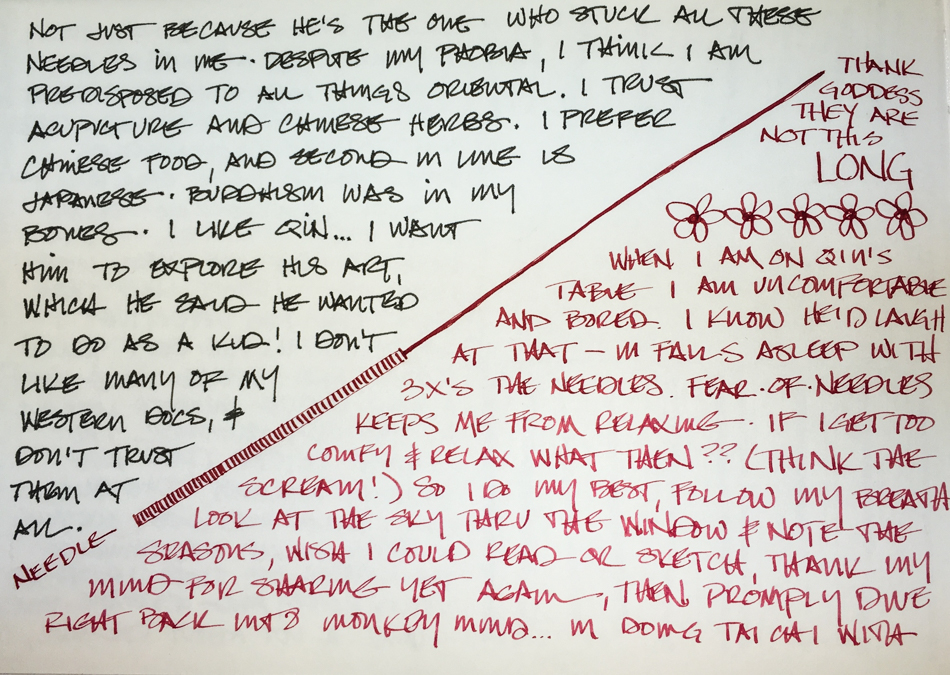 NOT JUST BECAUSE HE'S THE ONE WHO STUCK ALL THESE
NEEDLES IN ME. DESPITE MY PHOBIA, I THINK I AM
PREDISPOSED TO ALL THINGS ORIENTAL. I TRUST
ACUPUCTURE AND CHINESE HERBS. I PREFER
CHINESE FOOD, AND SECOND IN LINE IS
JAPANESE. BUDDHISM WAS IN MY
BONES. I LIKE QIN... I WANT
HIM TO EXPLORE HIS ART,
WHICH HE SAID HE WANTED
TO DO AS A KID! I DON'T
LIKE MANY OF MY
WESTERN DOCS, &
DON'T TRUST
THEM AT
ALL.
NEEDLE
THANK
GODDESS
THEY ARE
NOT THIS
LONG
WHEN I AM ON QIN'S
TABLE I AM UNCOMFORTABLE
AND BORED. I KNOW HE'D LAUGH
AT THAT – M FALLS ASLEEP WITH
3X'S THE NEEDLES. FEAR·OF·NEEDLES
KEEPS ME FROM RELAXING. IF I GET TOO
COMFY & RELAX WHAT THEN?? (THINK THE
SCREAM!) SO I DO MY BEST, FOLLOW MY BREATH
LOOK AT THE SKY THRU THE WINDOW & NOTE THE
SEASONS, WISH I COULD READ OR SKETCH, THANK MY
MIND FOR SHARING YET AGAIN, THEN PROMPLY DIVE
RIGHT BACK INTO MONKEY MIND... M DOING TAI CHI WITH